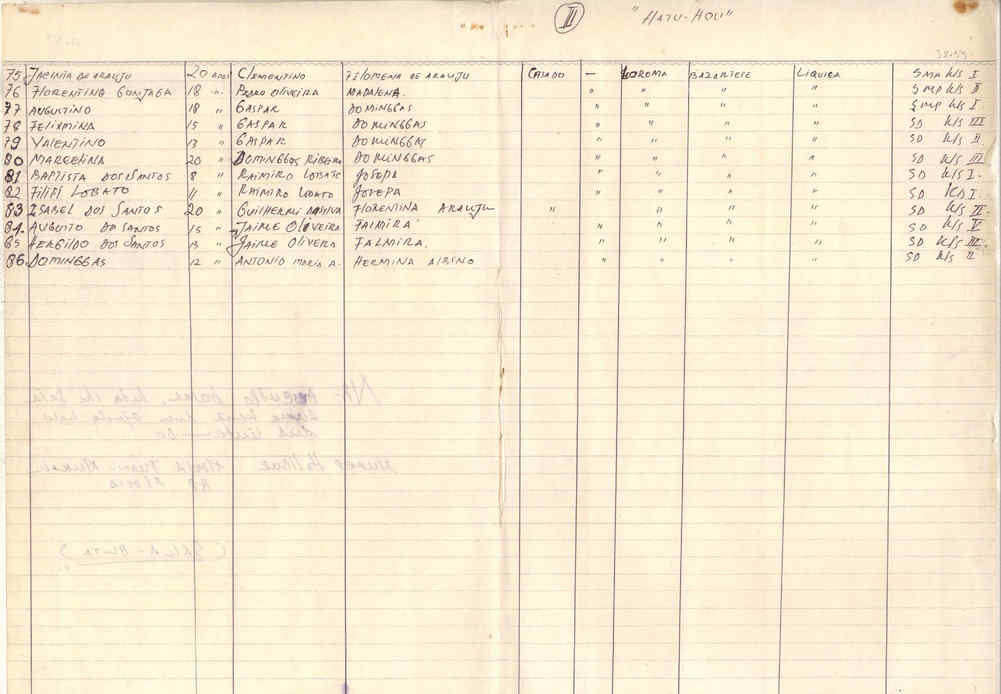 II "HATU-HOU"
75. JACINTA DE ARAUJU 20 ANOS CLEMENTINO FILOMENA DE ARAUJU CASADO — LOROMA BAZARTETE LIQUICA SMA K/S I
76 FLORENTINO GONJAGA 18 " PEDRO OLIVEIRA MADALENA. " " " " SMP K/S II
77 AUGUSTINO 18 " GASPAR DOMINGGAS " " " " SMP K/S I.
78 FELISMINA 15 " GASPAR DOMINGGAS " " " " SD K/S III
79 VALENTINO 13 " GASPAR DOMINGGAS " " " " SD K/S II
80 MARCELINA 20 " DOMINGGOS RIBEIRO DOMINGGAS " " " " SD K/S III
81 BAPTISTA DOS SANTOS 8 " RAIMIRO LOBATO JOSEPA " " " " SD K/S I.
82 FILIPI LOBATO 11 " RAIMIRO LOBATO JOZEPA " " " " SD K/S I.
83 IZABEL DOS SANTOS 20 " GUILHERMI DA SILVA FLORENTINA ARAUJU " " " " SD K/S III
84. AUGUSTO DO SANTOS 15 " JAIME OLIVEIRA FALMIRA " " " " SD K/S V
85 HERGILDO DOS SANTOS 13 " JAIME OLIVERA FALMIRA. " " " " SD K/S III
86. DOMINGGAS 12 " ANTONIO MARIA. A. HERMINA ALBINO " " " " SD K/S II